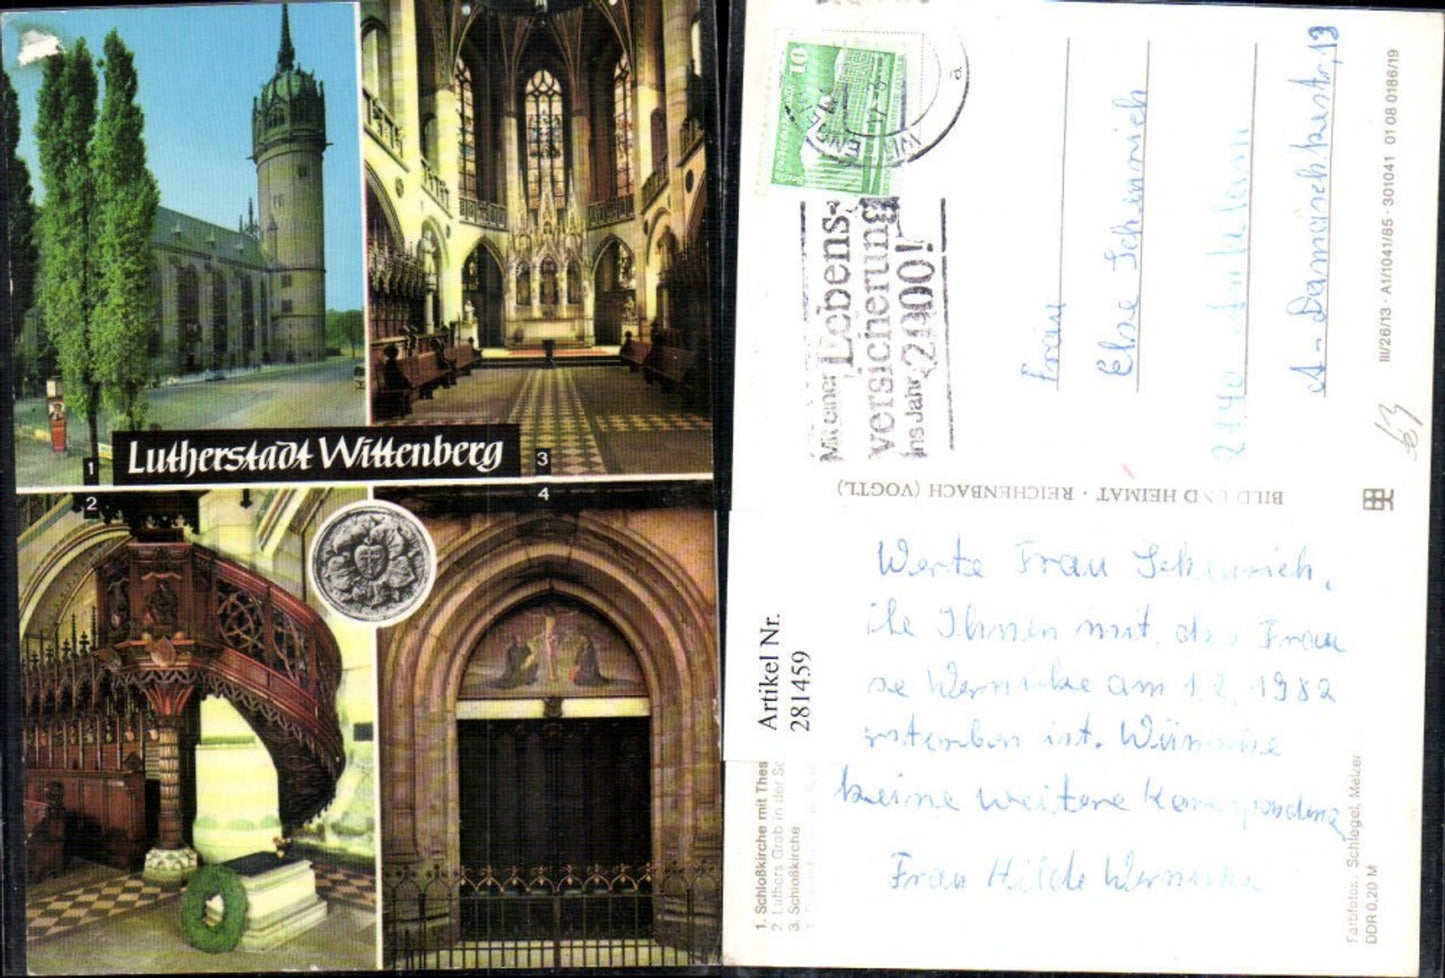 1
Lutherstadt Wittenberg
3
2
4
10
Mit einer Lebens-
versicherung
ins Jahr 2000!
Frau
Else Schunnich
2140 Anklam
A-Damaschkestr. 13
III/26/13 · A1/1041/85 · 301041 01 08 0186/19
BILD UND HEIMAT · REICHENBACH (VOGTL)
Werte Frau
Ihnen mit, das Frau
Wernicke am 1.2.1982
ist. Wünsche
keine weitere Korrespondenz
Frau Hilde Wernicke
Artikel Nr.
281459
1. Schloßkirche mit Thes
2. Luthers Grab in der Sc
3. Schloßkirche
Farbfotos: Schlegel, Melzer
DDR 0,20 M